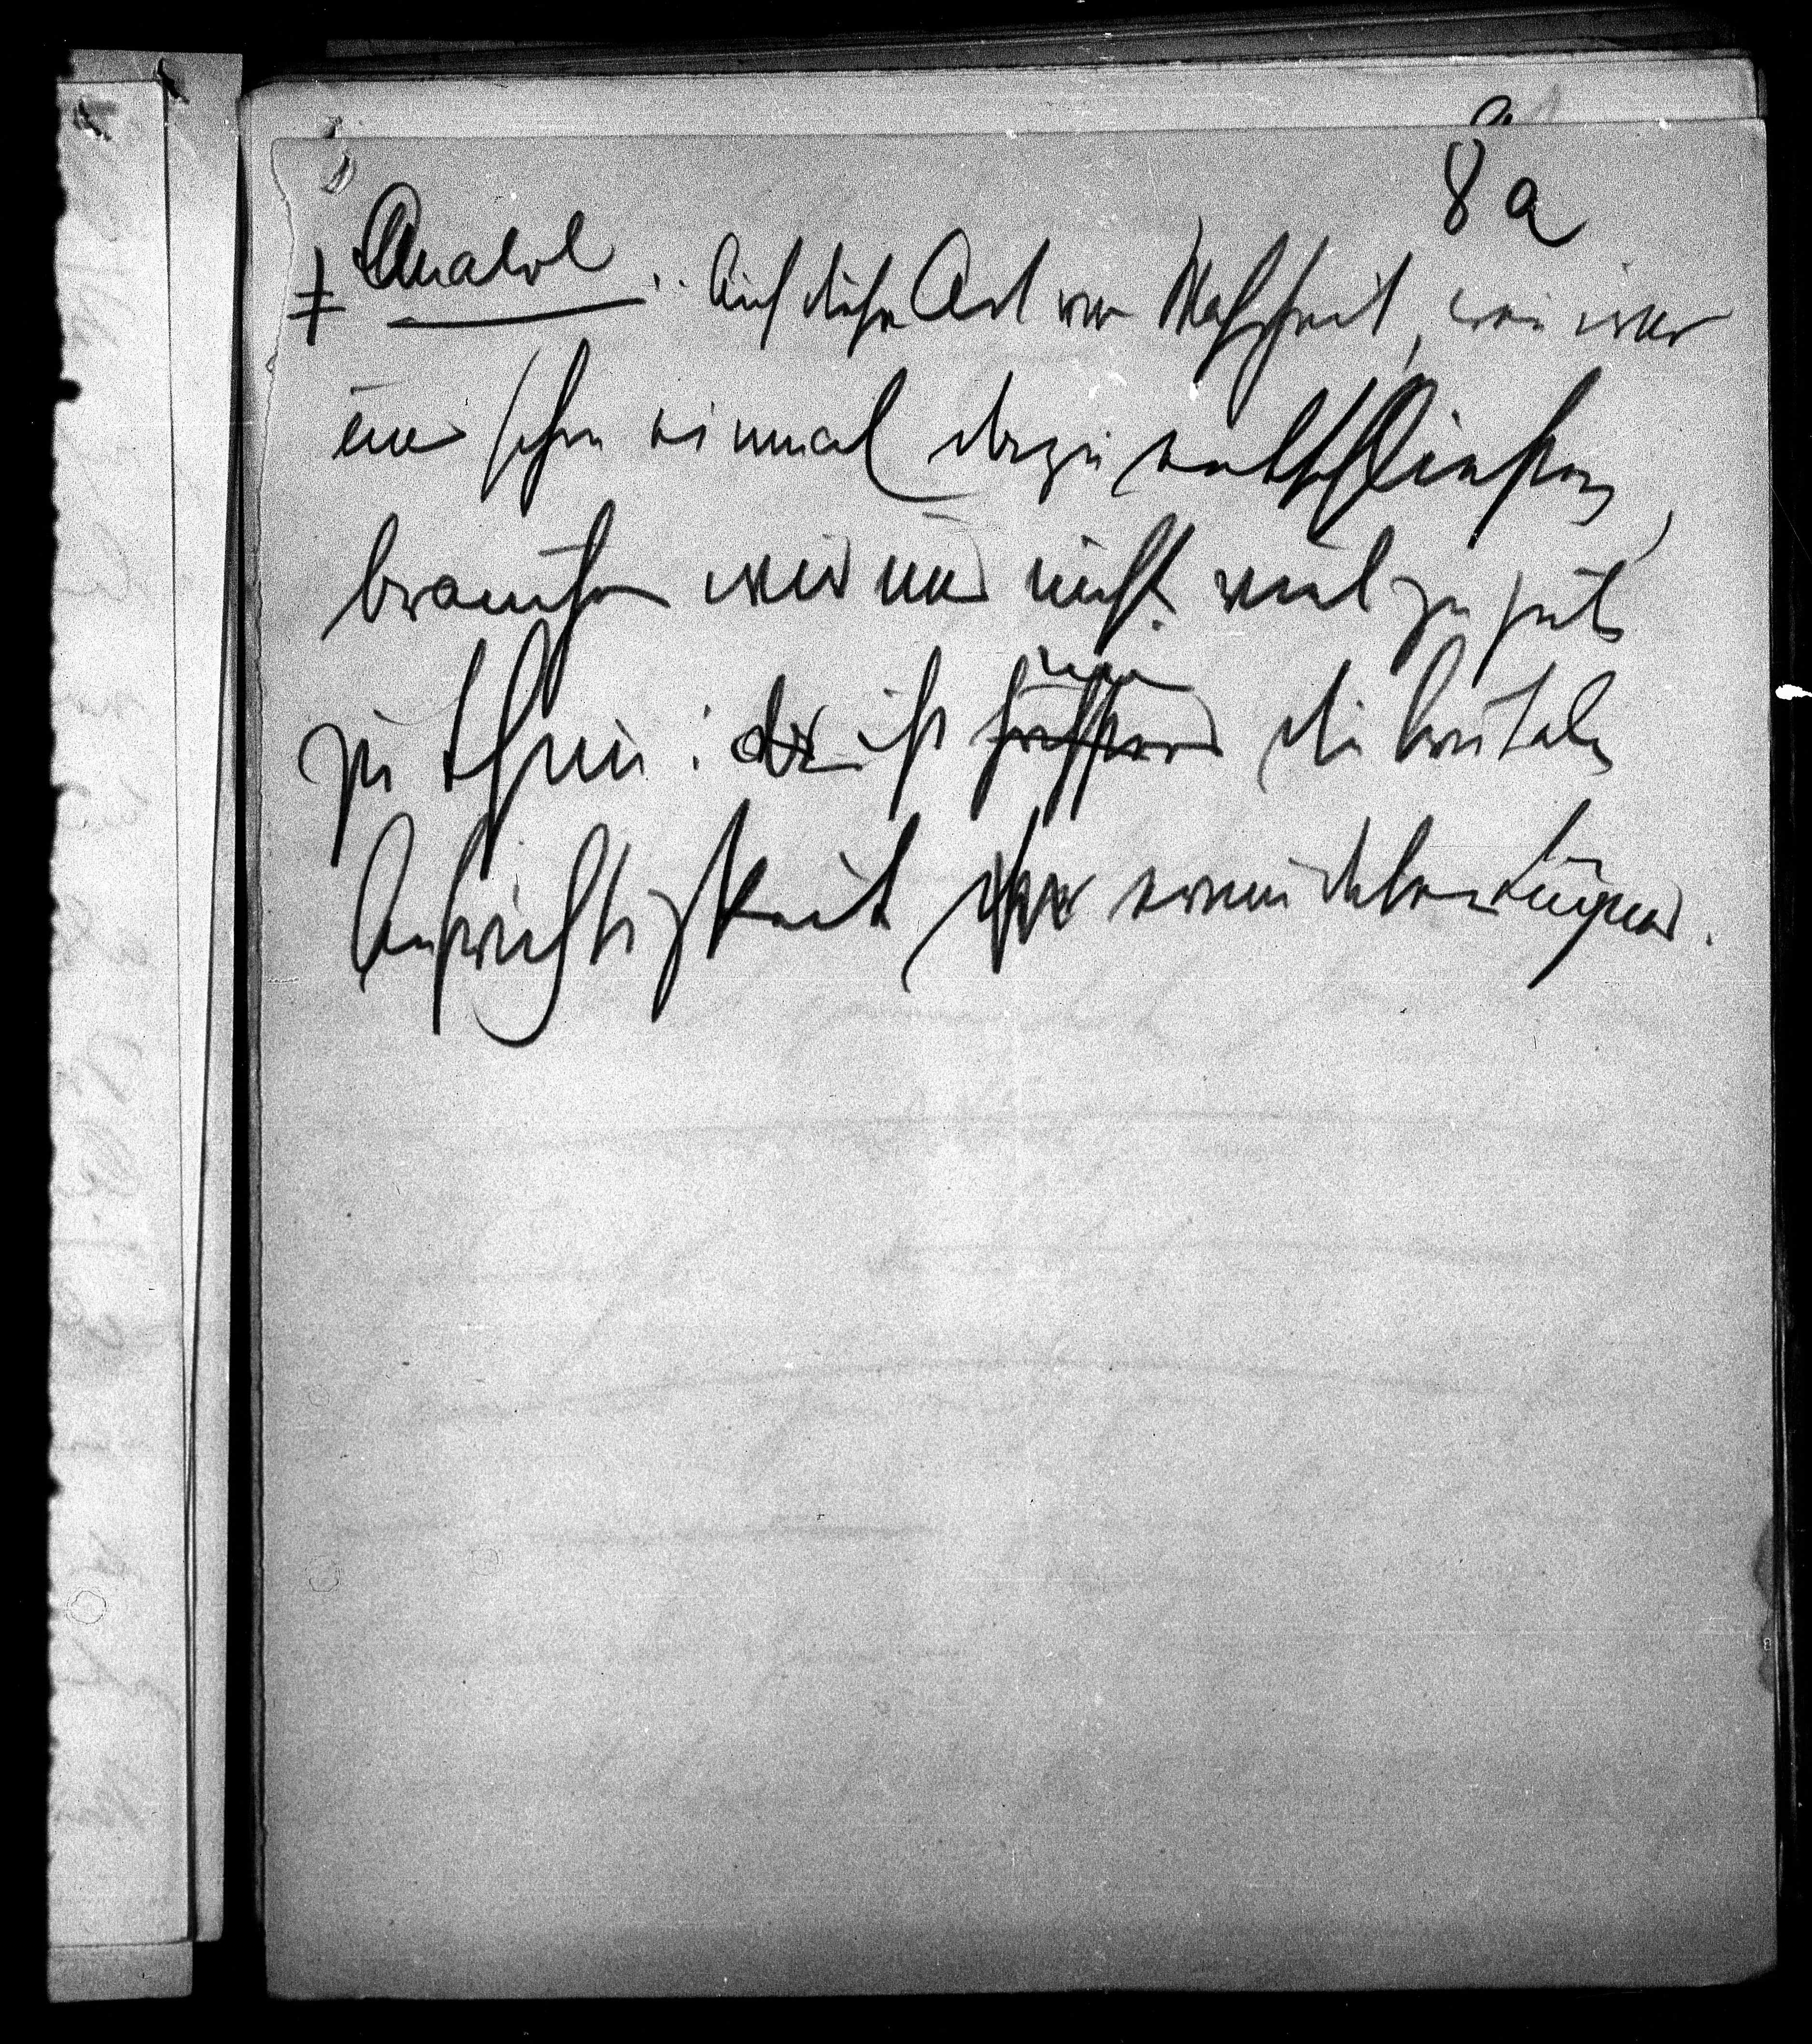 8a
‡ Anatol .. Auf diese Art von Wahrheit, wenn wir
uns schon einmal dazu entschließen,
brauchen wir uns nicht viel zu gute
zu thun: das ist nur die brutale
Aufrichtigkeit des ermüdeten Lügners.